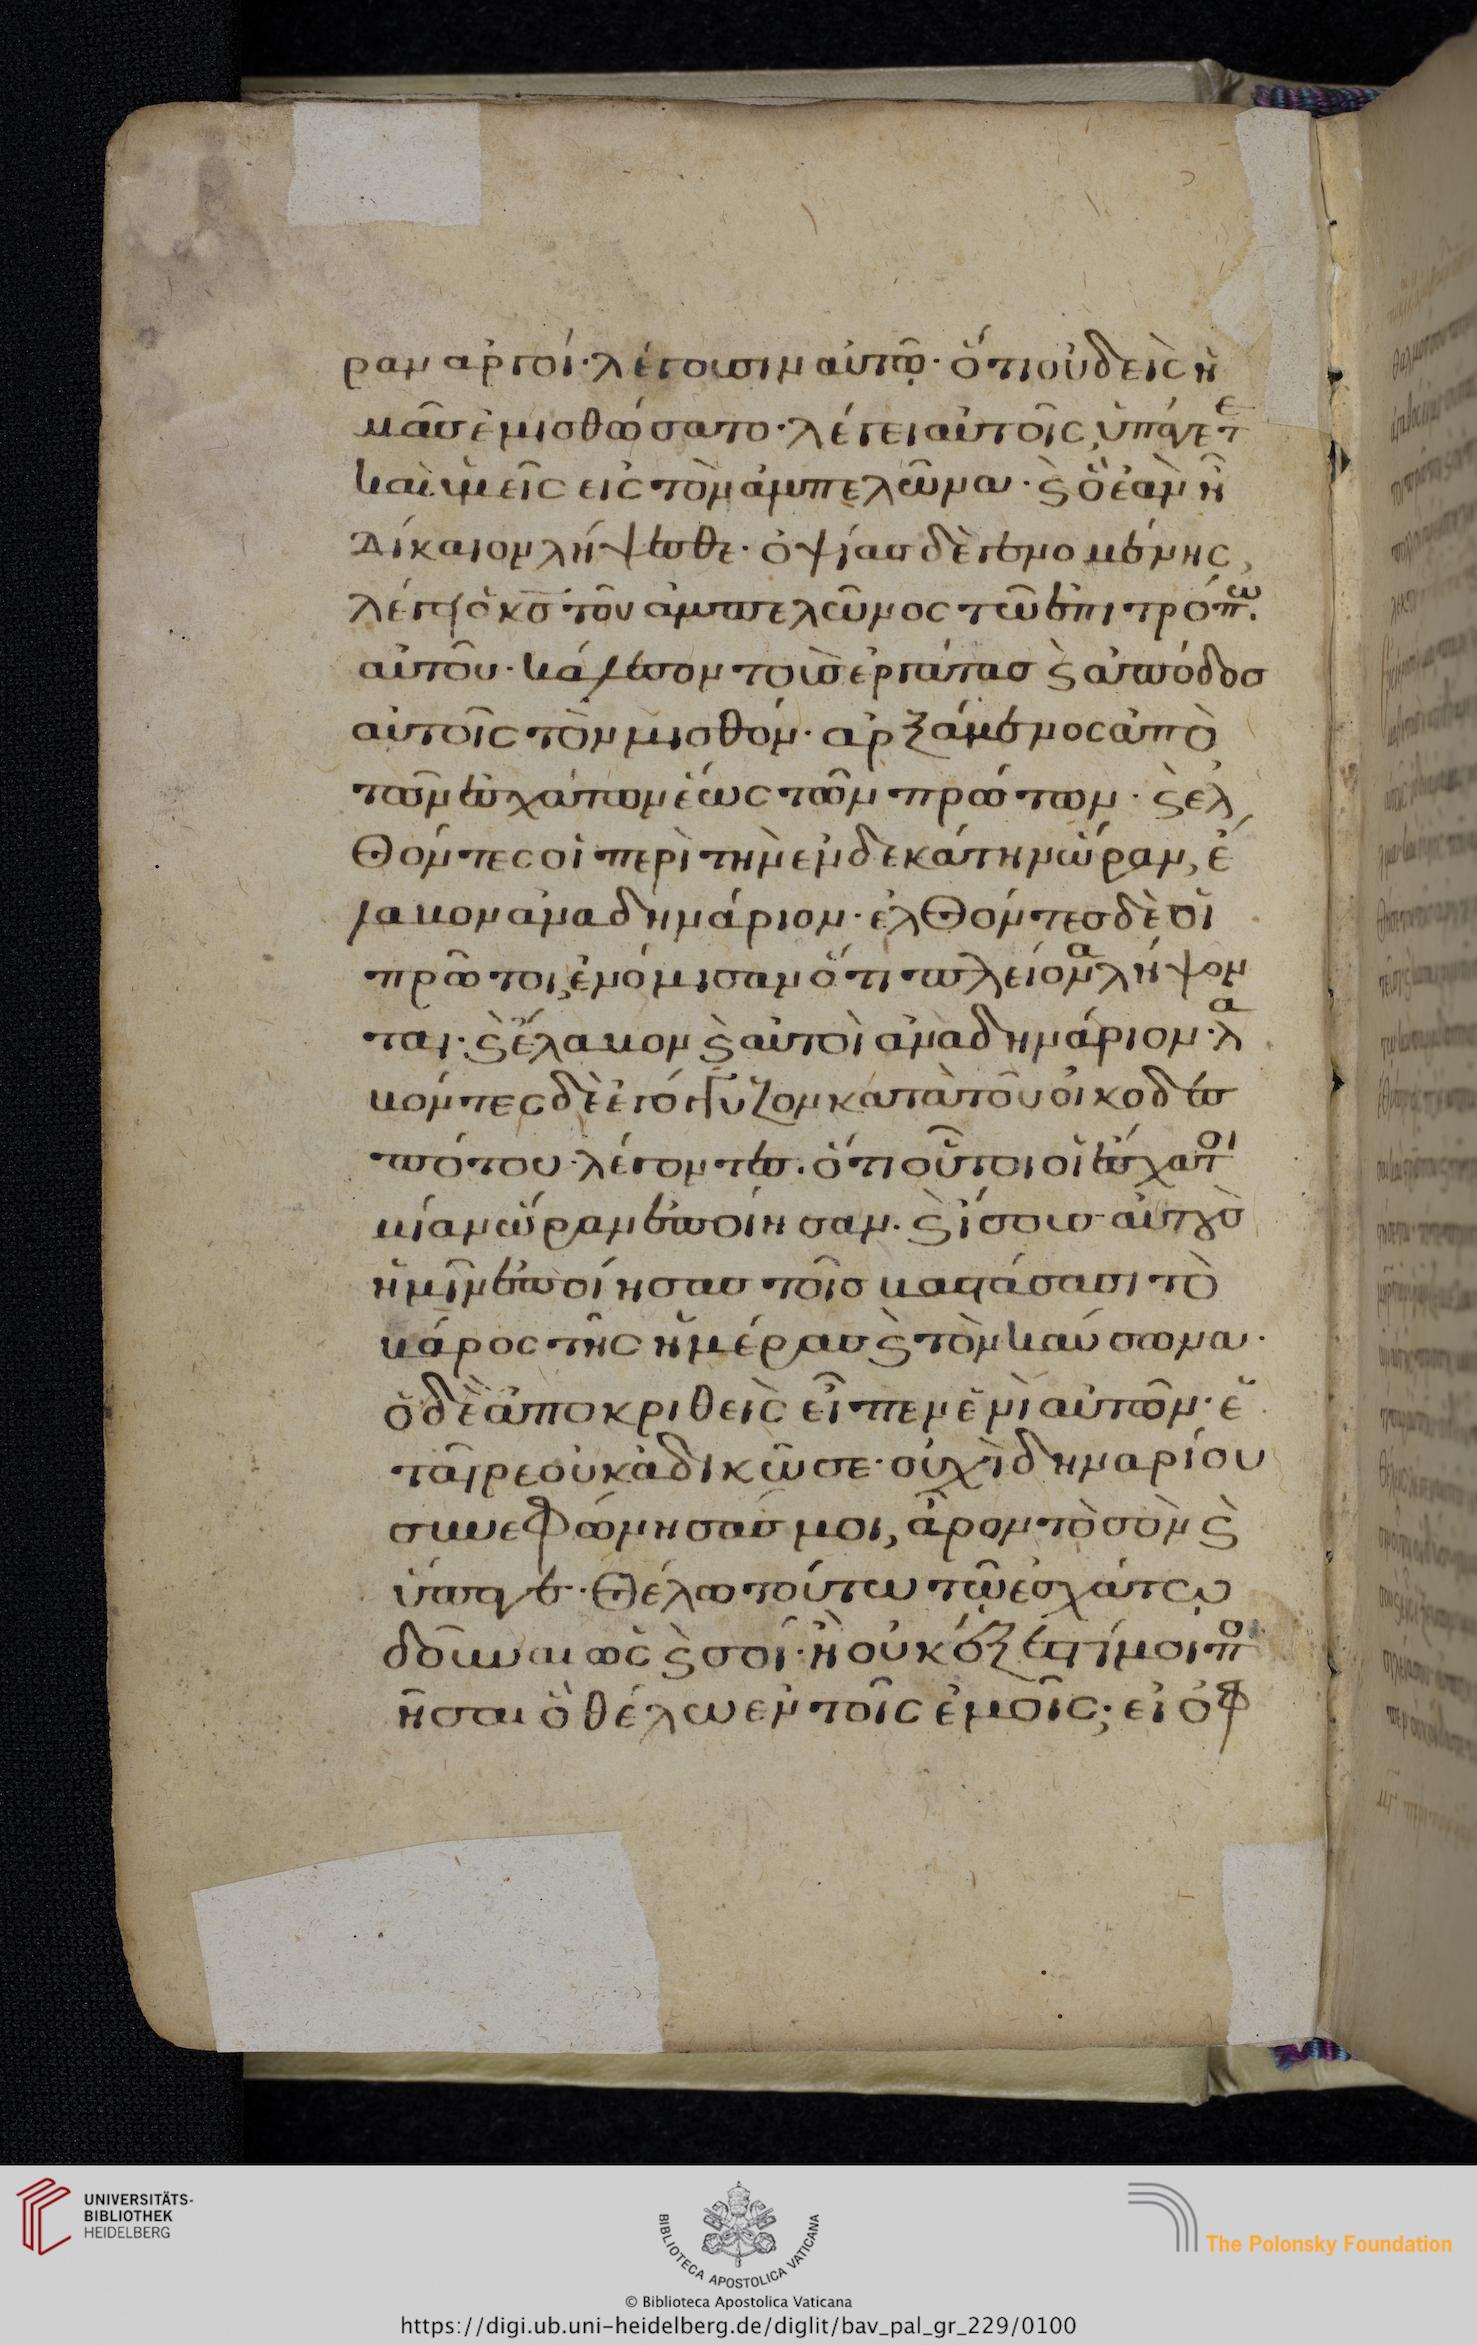 ραν ἀργοί· λέγουσιν αὐτῷ· ὅτι οὐδεὶς ἡ
μᾶς ἐμισθώσατο· λέγει αὐτοῖς, ὑπάγετε
καὶ ὑμεῖς εἰς τὸν ἀμπελῶνα· ϗ ὃ ἐὰν ᾖ
δίκαιον λήψεσθε· ὀψίας δὲ γενομένης,
λέγει ὁ κ̅ς̅ τοῦ ἀμπελῶνος τῶ ἐπιτρόπω.
αὐτοῦ· κάλεσον τοὺς ἐργάτας ϗ ἀπόδος
αὐτοῖς τὸν μισθόν· ἀρξάμενος ἀπὸ
τῶν ἐσχάτων ἕως τῶν πρώτων· ϗ ἐλ
θόντες οἱ περὶ τὴν ἑνδεκάτην ὥραν, ἔ
λαβον ἀνὰ δηνάριον· ἐλθόντες δὲ οἱ
πρῶτοι, ἐνόμισαν ὅτι πλείονα λήψον
ται· ϗ ἔλαβον ϗ αὐτοὶ ἀνὰ δηνάριον· λα
βόντες δὲ ἐγόγγυζον κατὰ τοῦ οἰκοδεσ
πότου· λέγοντες· ὅτι οὗτοι οἱ ἔσχατοι
μίαν ὥραν ἐποίησαν· ϗ ἴσους αὐτοὺς
ἡμῖν ἐποίησας τοῖς βαστάσασι τὸ
βάρος τῆς ἡμέρας ϗ τὸν καύσωνα·
ὁ δὲ ἀποκριθεὶς εἶπεν ἑνὶ αὐτῶν· ἑ
ταῖρε οὐκ ἀδικῶ σε· οὐχὶ δηναρίου
συνεφώνησάς μοι, ἆρον τὸ σὸν ϗ
ὕπαγε· θέλω τούτω τῷ ἐσχάτῳ
δοῦναι ὡς ϗ σοί· ἢ οὐκ ἔξεστί μοι ποι
ῆσαι ὃ θέλω ἐν τοῖς ἐμοῖς; εἰ ὀφ
UNIVERSITÄTS-
BIBLIOTHEK
HEIDELBERG
BIBLIOTECA APOSTOLICA VATICANA
The Polonsky Foundation
© Biblioteca Apostolica Vaticana
https://digi.ub.uni-heidelberg.de/diglit/bav_pal_gr_229/0100